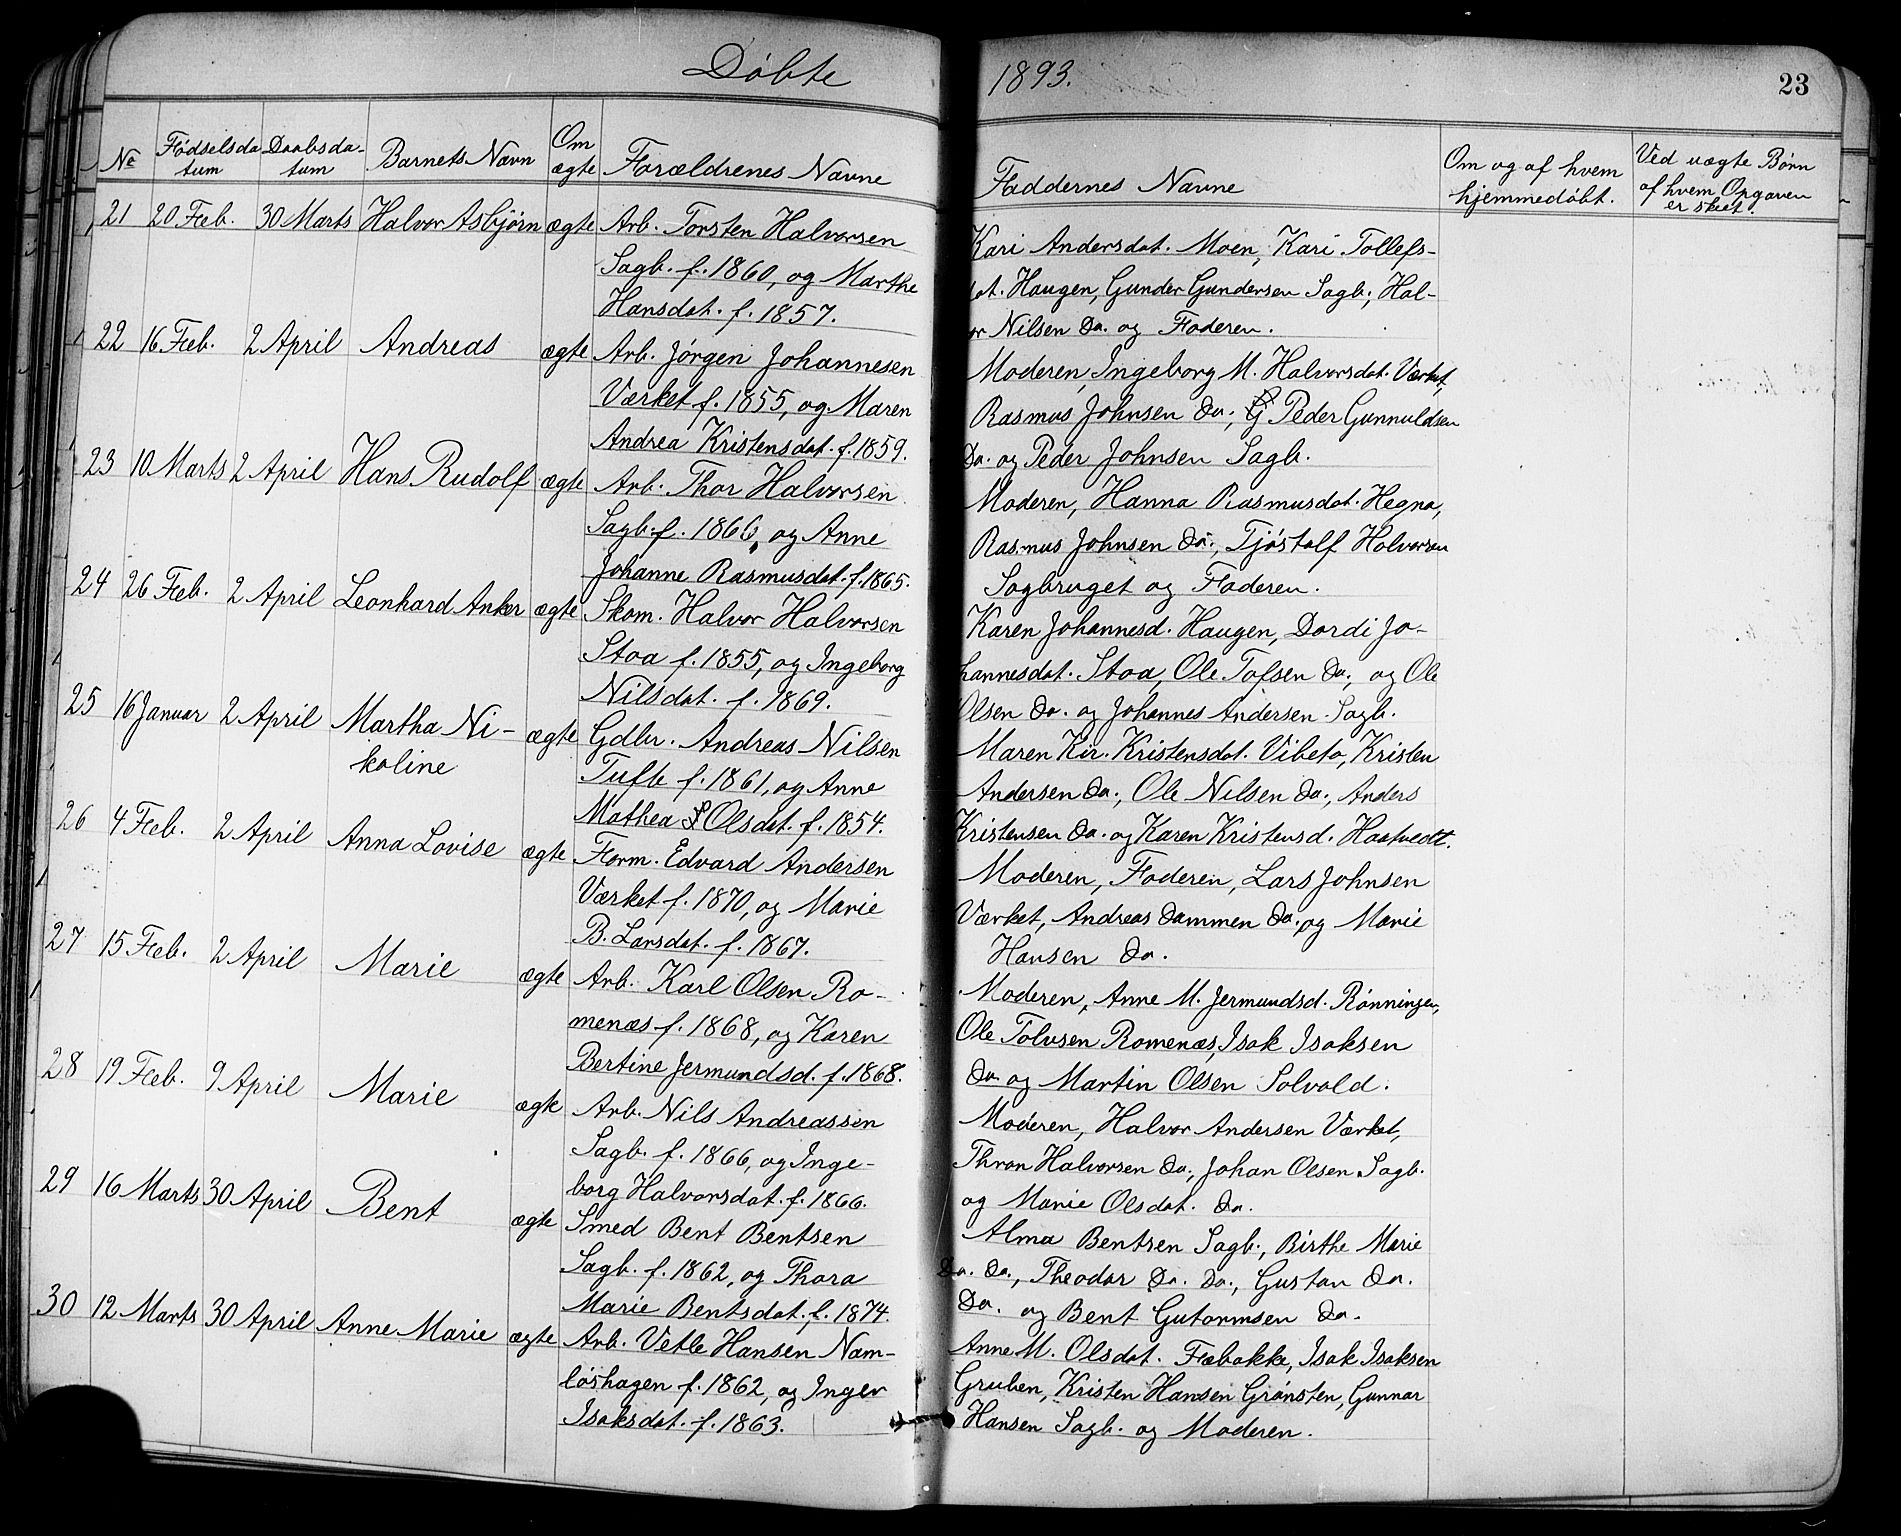 Döbte 1893. 23
№ Födselsda- Daabsda- Barnets Navn Om Forældrenes Navne Faddernes Navne Om og af hvem Ved uægte Børn
tum tum ægte hjemmedöbt. af hvem Opgaven
er skeet.
21 20 Feb. 30 Marts Halvor Asbjörn ægte Arb. Torsten Halvorsen
Sagb. f. 1860, og Marthe
Hansdat. f. 1857.
Kari Andersdat. Moen, Kari Tollefs-
dat. Haugen, Gunder Gundersen Sagb., Hal-
vor Nilsen Do. og Faderen.
22 16 Feb. 2 April Andreas ægte Arb. Jörgen Johannesen
Værket f. 1855, og Maren
Andrea Kristensdat. f. 1859.
Moderen, Ingeborg M. Halvorsdat. Værket,
Rasmus Johnsen Do., Peder Gunnuldsen
Do. og Peder Johnsen Sagb.
23 10 Marts 2 April Hans Rudolf ægte Arb. Thor Halvorsen
Sagb. f. 1866, og Anne
Johanne Rasmusdat. f. 1865.
Moderen, Hanna Rasmusdat. Hegna,
Rasmus Johnsen Do., Tjöstolf Halvorsen
Sagbruget og Faderen.
24 26 Feb. 2 April Leonhard Anker ægte Skom. Halvor Halvorsen
Stoa f. 1855, og Ingeborg
Nilsdat. f. 1869.
Karen Johannesd. Haugen, Dordi Jo-
hannesdat. Stoa, Ole Tofsen Do., og Ole
Olsen Do. og Johannes Andersen Sagb.
25 16 Januar 2 April Martha Ni- ægte Gdbr. Andreas Nilsen
koline Tufte f. 1861, og Anne
Mathea Olsdat. f. 1854.
Maren Kir. Kristensdat. Vibeto, Kristen
Andersen Do., Ole Nilsen Do., Anders
Kristensen Do. og Karen Kristensd. Haatvedt.
26 4 Feb. 2 April Anna Lovise ægte Form. Edvard Andersen
Værket f. 1870, og Marie
B. Larsdat. f. 1867.
Moderen, Faderen, Lars Johnsen
Værket, Andreas Dammen Do. og Marie
Hansen Do.
27 15 Feb. 2 April Marie ægte Arb. Karl Olsen Ro-
menæs f. 1868, og Karen
Bertine Jermundsd. f. 1868.
Moderen, Anne M. Jermundsd. Rönningen,
Ole Tolvsen Romenæs, Isak Isaksen
Do. og Martin Olsen Solvold.
28 19 Feb. 9 April Marie ægte Arb. Nils Andreassen
Sagb. f. 1866, og Inge-
borg Halvorsdat. f. 1866.
Moderen, Halvor Andersen Værket,
Thron Halvorsen Do., Johan Olsen Sagb.
og Marie Olsdat. Do.
29 16 Marts 30 April Bent ægte Smed Bent Bentsen
Sagb. f. 1862, og Thora
Marie Bentsdat. f. 1874.
Alma Bentsen Sagb., Birthe Marie
Do. Do., Theodor Do. Do., Gustav Do.
Do. og Bent Gutormsen Do.
30 12 Marts 30 April Anne Marie ægte Arb. Vetle Hansen Nam-
löshagen f. 1862, og Inger
Isaksdat. f. 1863.
Anne M. Olsdat. Fæbakke, Isak Isaksen
Gruben, Kristen Hansen Grönsten, Gunnar
Hansen Sagb. og Moderen.